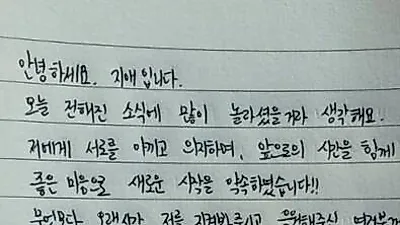 안녕하세요. 지애입니다.
오늘 전해진 소식에 많이 놀라셨을거라 생각해요.
저에게 서로를 아끼고 의지하며, 앞으로의 시간을 함께
좋은 마음으로 새로운 시작을 약속하였습니다!!
무엇보다 오랜시간 저를 지켜봐주시고 응원해주신